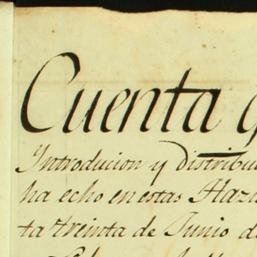 Cuenta q
Introducion y distribu
ha echo en estas Hazi
ta treinta de Junio d